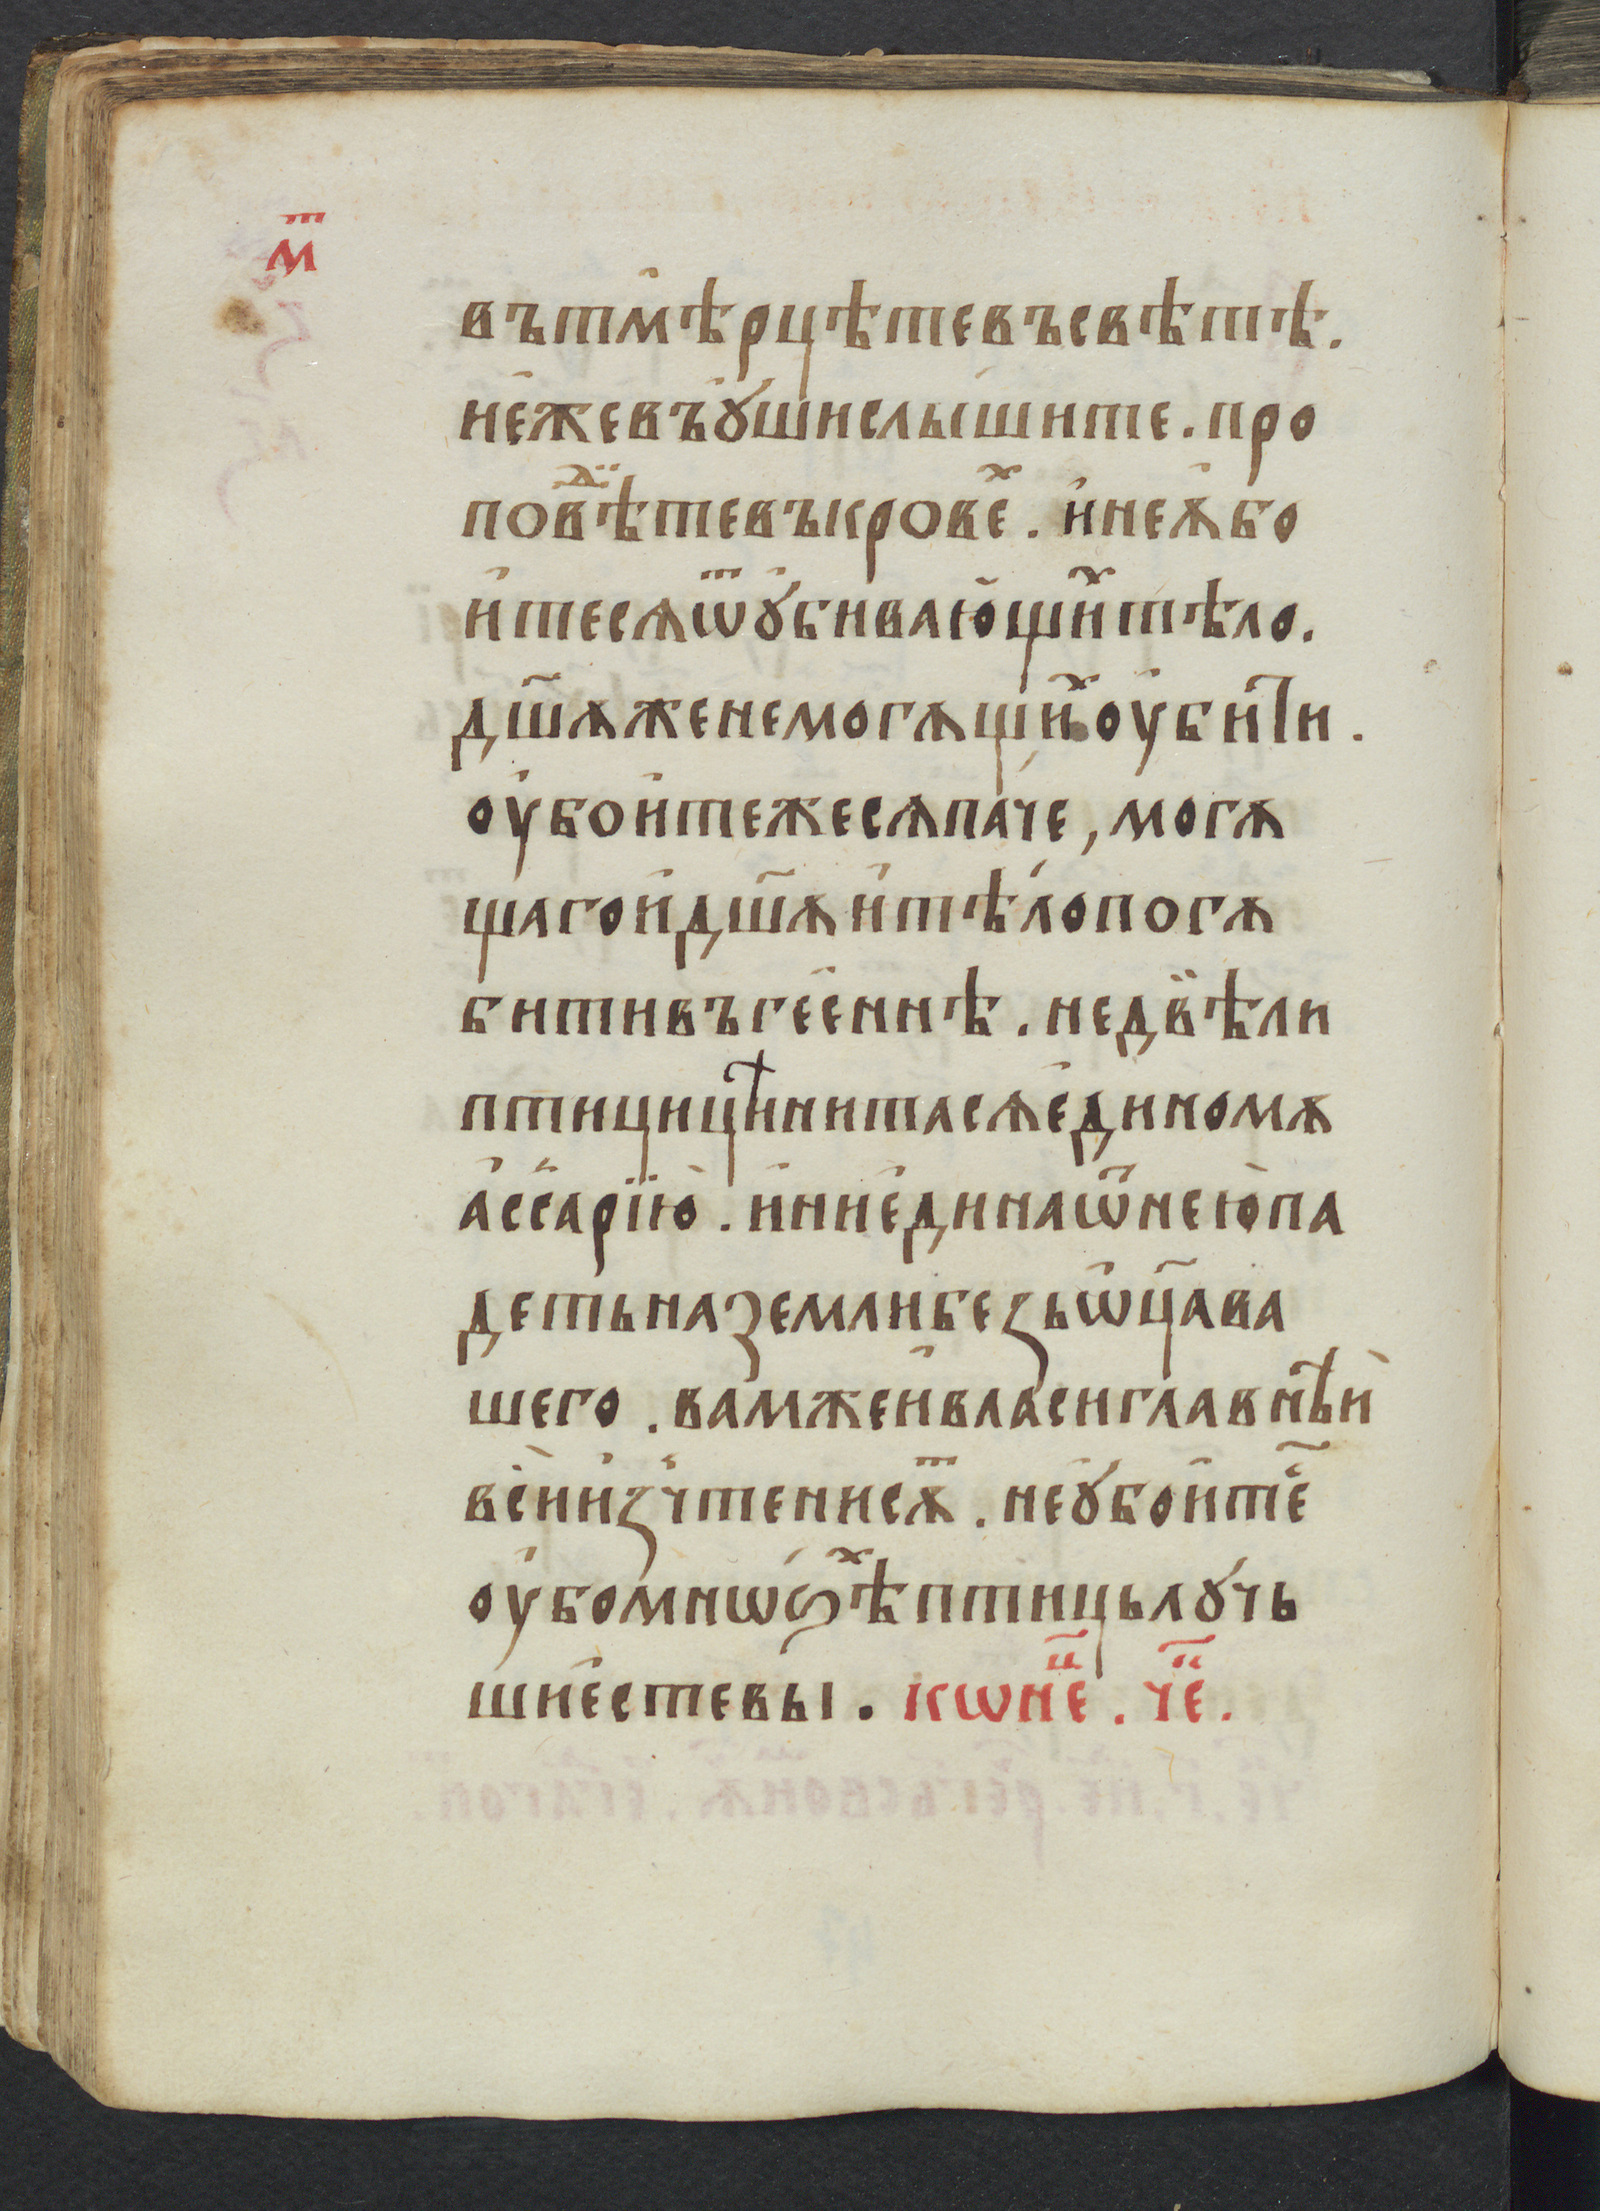 мⷮ
въ тмѣ рцѣте въ свѣтѣ.
не́же въ ѹ҆ши слы́шите. про
повⷣѣ́ите въ кровеⷯ. и҆ не ѫ҆бо
и҆те сѧ ѿ ѹ҆бива́ю҆щиⷯ тѣло.
дш҃ѫ же не могѫщиⷯ оу҆би́ти.
оу҆бои҆те же сѧ па́че, могѫ
щаго и҆ дш҃ѫ и҆ тѣ́ло погѫ
бити въ гее҆ннѣ. не двѣ ли
птици цѣнита сѧ е҆диномѫ
а҆сса́рїю̀. и҆ ни е҆дина ѿ нею̀ па
деть на земли без ѡ҆ц҃а ва
шего. вам же и҆ власи главнїи
вси̇̀ и҆зчтени сѫⷮ. не ѹ҆бои҆те
оу҆бо мнѡ́ѕѣⷯ птиць лѹ́чь
ши е҆сте вы̀. кѡнеⷰ҇. чеⷮ.